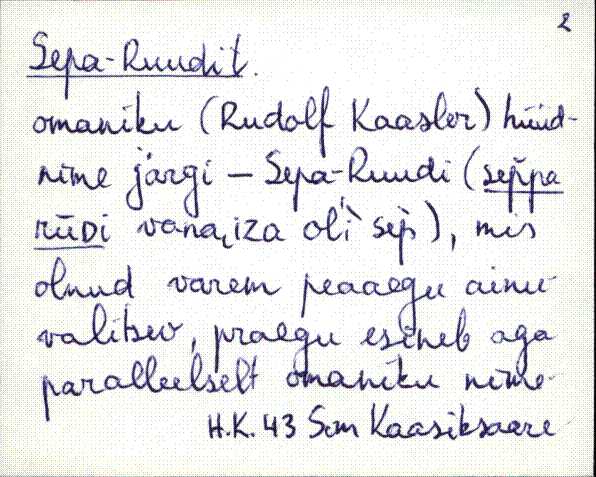 2
Sepa-Ruudit.
omaniku (Rudolf Kaasler) hüüd-
nime järgi – Sepa-Ruudi (sep̀pa
rūDi vanaiza oĺi sep̀), mis
olnud varem peaaegu ainu-
valitsev, praegu esineb aga
paralleelselt omaniku nime-
H.K. 43 Sim Kaasiksaare